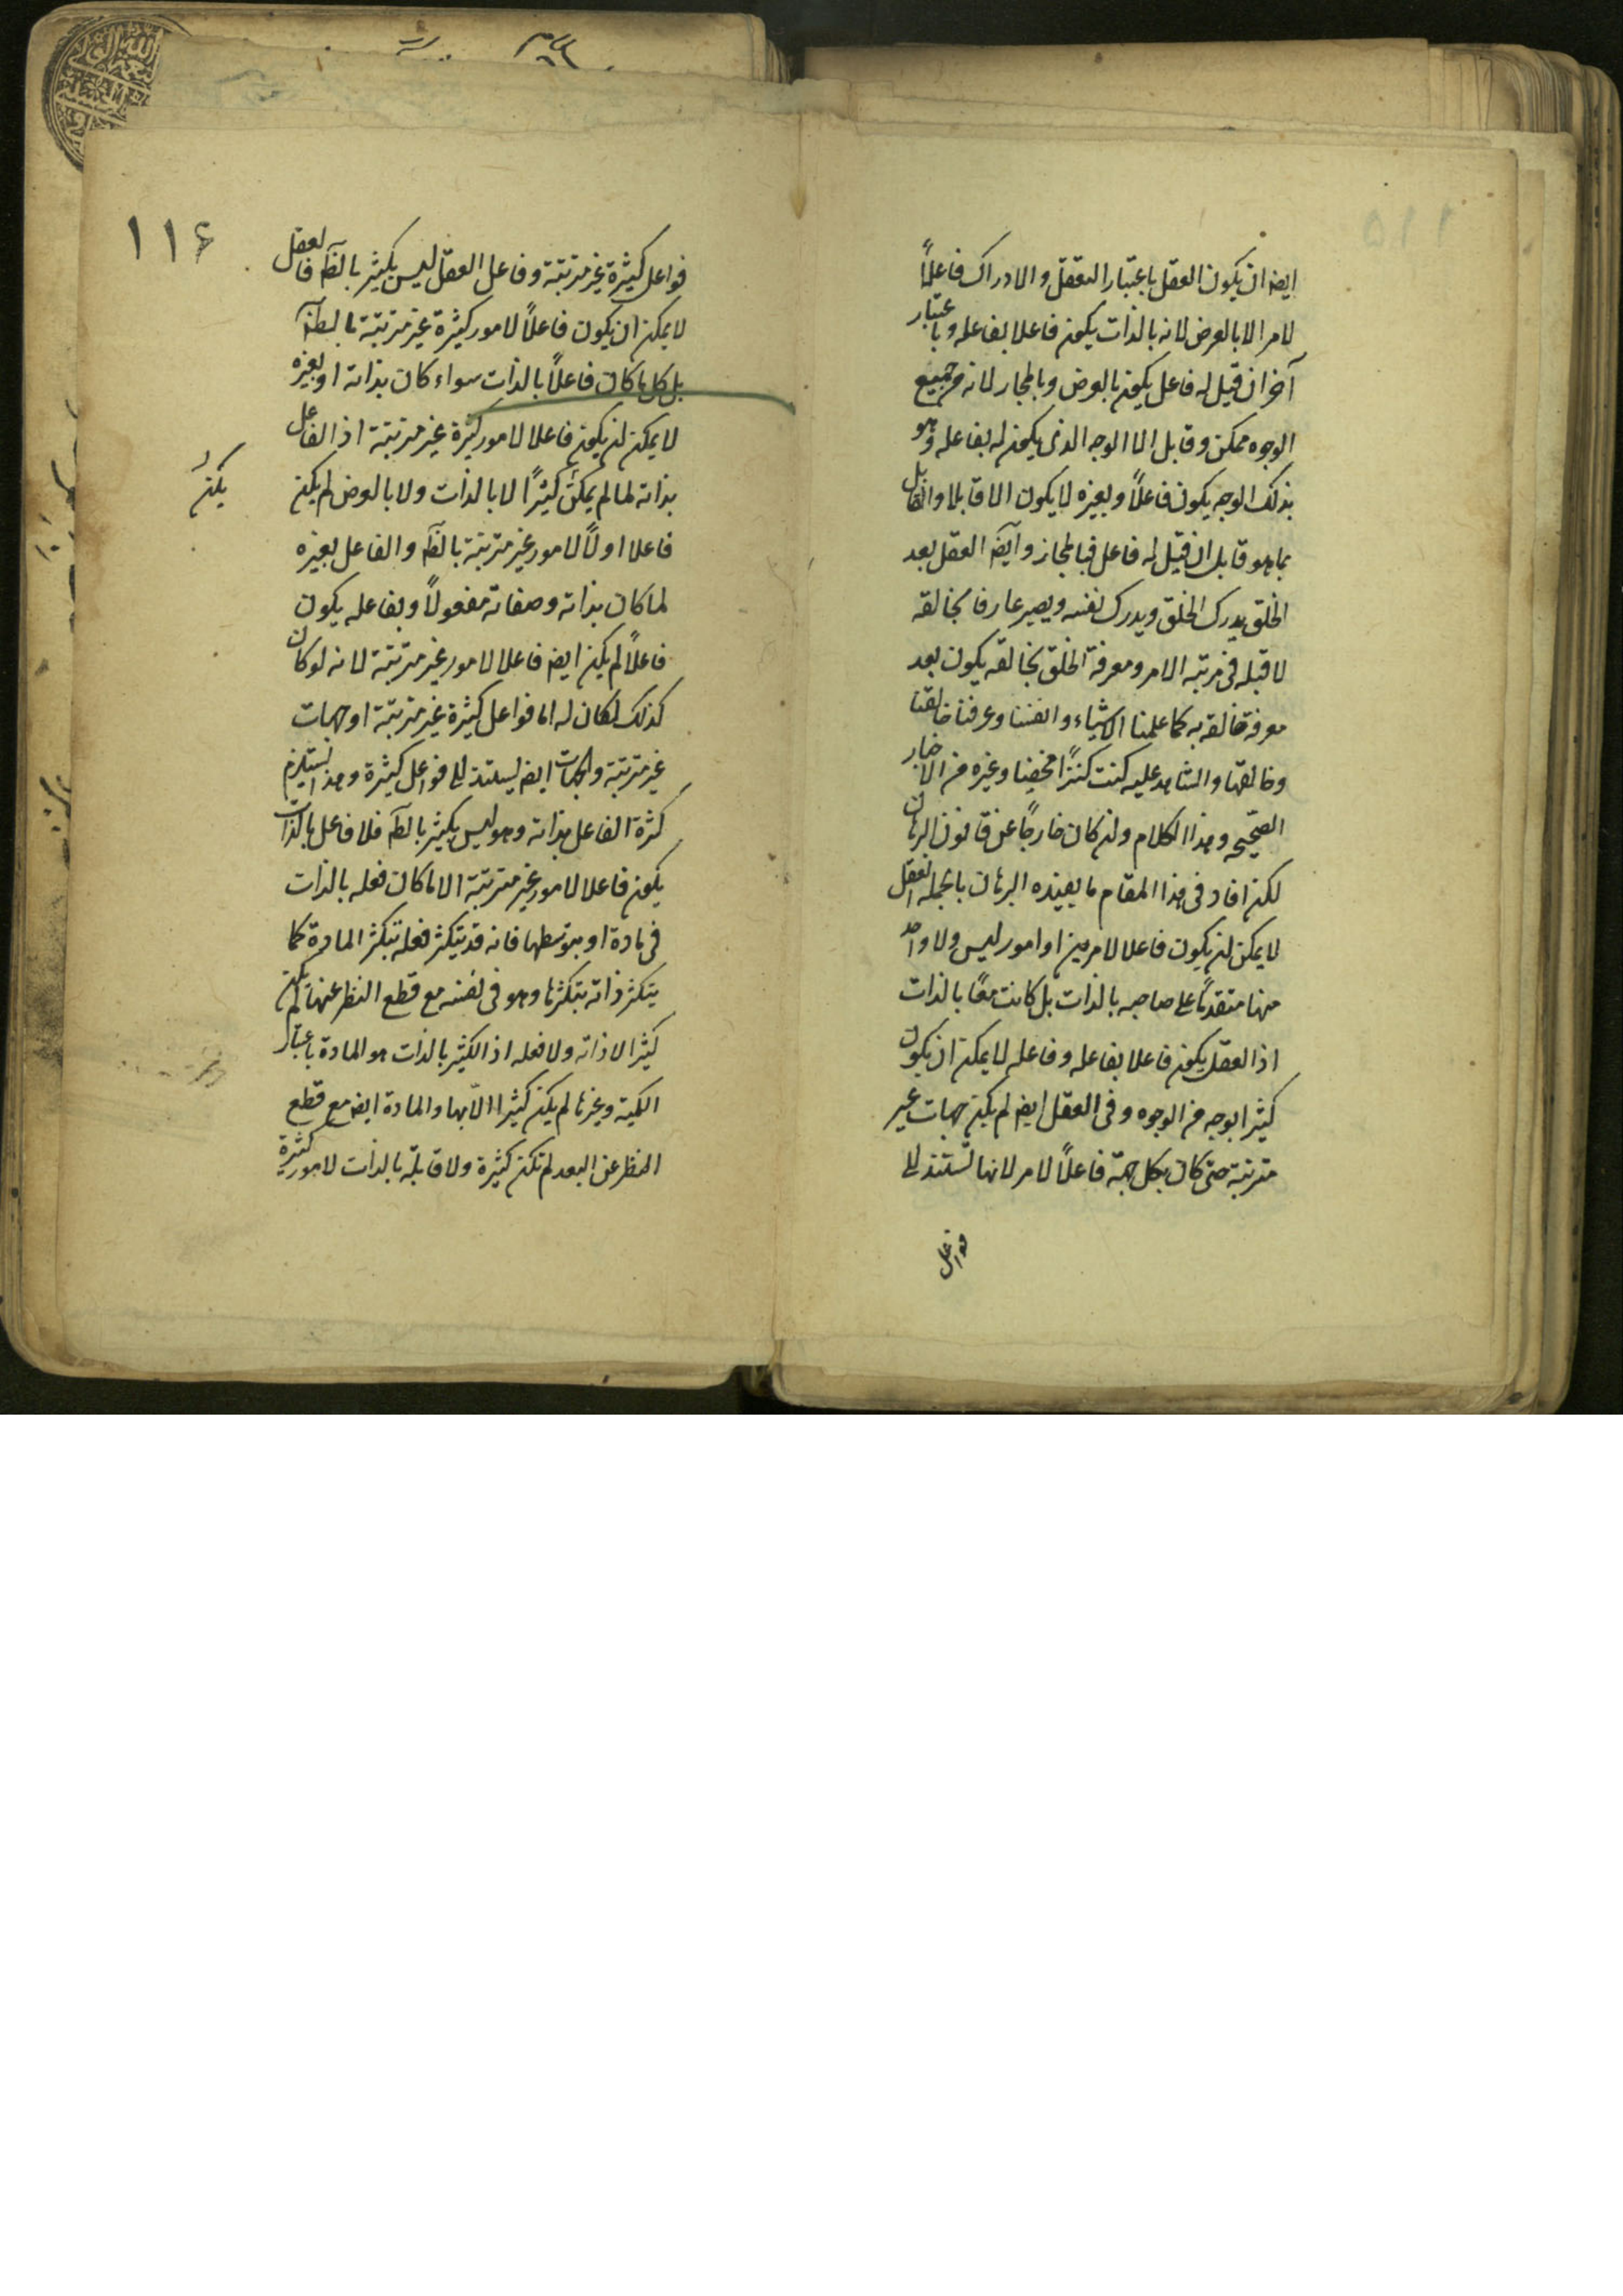 ايضا ان يكون العقل باعتبار التعقل والادراك فاعلاً
لامر الا بالعرض لانه بالذات يكون فاعلا بفاعله وباعتبار
آخر ان قيل له فاعل يكون بالعرض وبالمجاز لانه من جميع
الوجوه ممكن وقابل الا الوجه الذى يكون له بفاعله وهو
بذلك الوجه يكون فاعلاً وبغيره لا يكون الا قابلا والقابل
بما هو قابل ان قيل له فاعل فبالمجاز وايضا العقل بعد
الخلق يدرك الخلق ويدرك نفسه ويصير عارفا بخالقه
لا قبله فى مرتبه الامر ومعرفة الخلق بخالقه يكون بعد
معرفة خالقه به كما علمنا الاشياء وانفسنا وعرفنا خالقنا
وخالقها والشاهد عليه كنت كنزًا مخفيا وغيره من الاخبار
الصحيحه وهذا الكلام وان كان خارجًا عن قانون البرهان
لكن افاد فى هذا المقام ما يفيده البرهان بالجمله العقل
لا يمكن ان يكون فاعلا لامرين او امور ليس ولا واحد
منها متقدمًا على صاحبه بالذات بل كانت معًا بالذات
اذ العقل يكون فاعلا بفاعله وفاعله لا يمكن ان يكون
كثيرا بوجه من الوجوه وفى العقل ايضا لم يكن جهات غير
مترتبة حتى كان بكل جهة فاعلاً لامر لانها تستند الى
فواعل
١١۶
فواعل كثيرة غير مترتبة وفاعل العقل ليس بكثير بالضرورة فالعقل
لا يمكن ان يكون فاعلاً لامور كثيرة غير مترتبة بالضرورة
بل كل ما كان فاعلاً بالذات سواء كان بذاته او بغيره
لا يمكن ان يكون فاعلا لامور كثيرة غير مترتبة اذ الفاعل
بذاته لما لم يمكن كثيرًا لا بالذات ولا بالعرض لم يكن
يكن
فاعلا اولاً لامور غير مترتبة بالضرورة والفاعل بغيره
لما كان بذاته وصفاته مفعولاً وبفاعله يكون
فاعلاً لم يكن ايضا فاعلا لامور غير مترتبة لانه لو كان
كذلك لكان له اما فواعل كثيرة غير مترتبة او جهات
غير مترتبة والجهات ايضا يستند الى فواعل كثيرة وهذا يستلزم
كثرة الفاعل بذاته وهو ليس بكثير بالضرورة فلا فاعل بالذات
يكون فاعلا لامور غير مترتبة الا ما كان فعله بالذات
فى مادة او بتوسطها فانه قد يتكثر فعله بتكثر المادة كما
يتكثر ذاته بتكثرها وهو فى نفسه مع قطع النظر عنها لم يكن
كثيرا لا ذاته ولا فعله اذ الكثير بالذات هو المادة باعتبار
الكمية وغيرها لم يكن كثيرا الا بها والمادة ايضا مع قطع
النظر عن البعد لم تكن كثيرة ولا قابلة بالذات لامور كثيرة